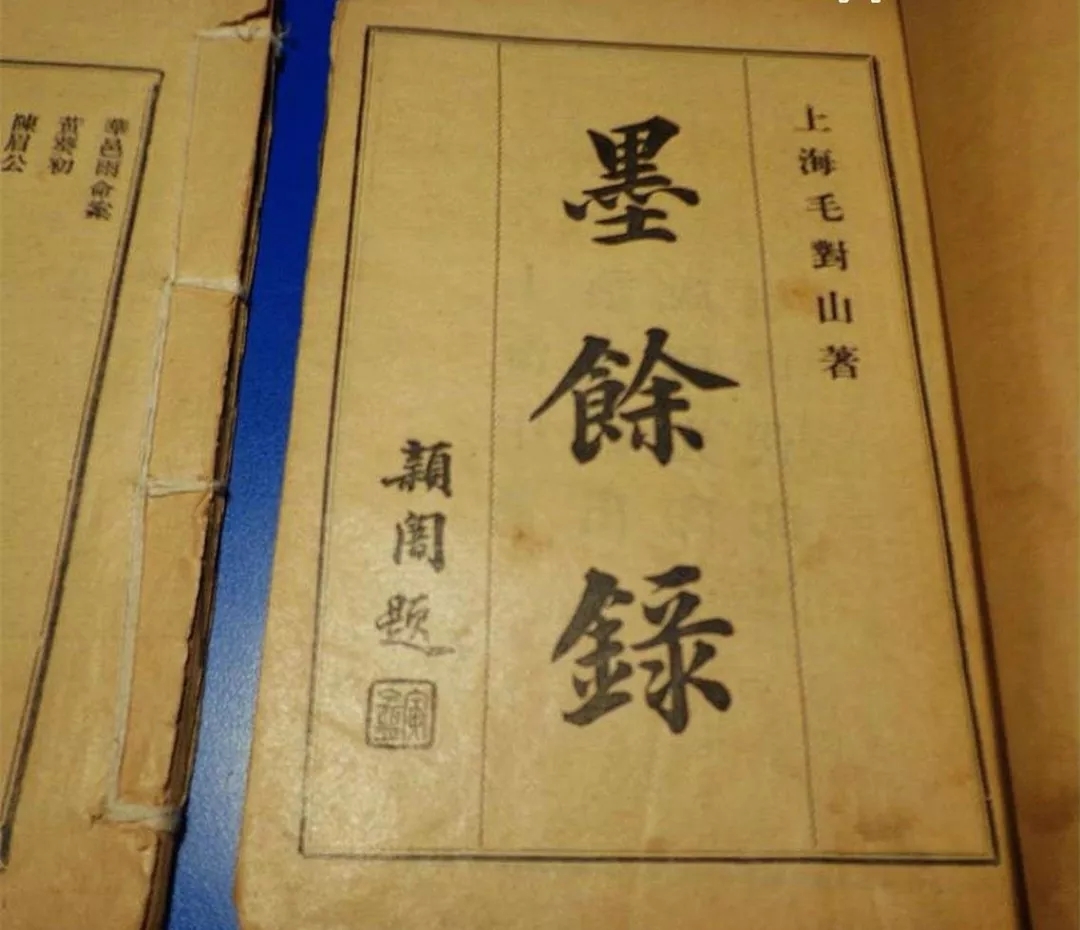 上海毛對山著
墨餘錄
穎閣題
華邑雨命案
黃葵初
陳眉公